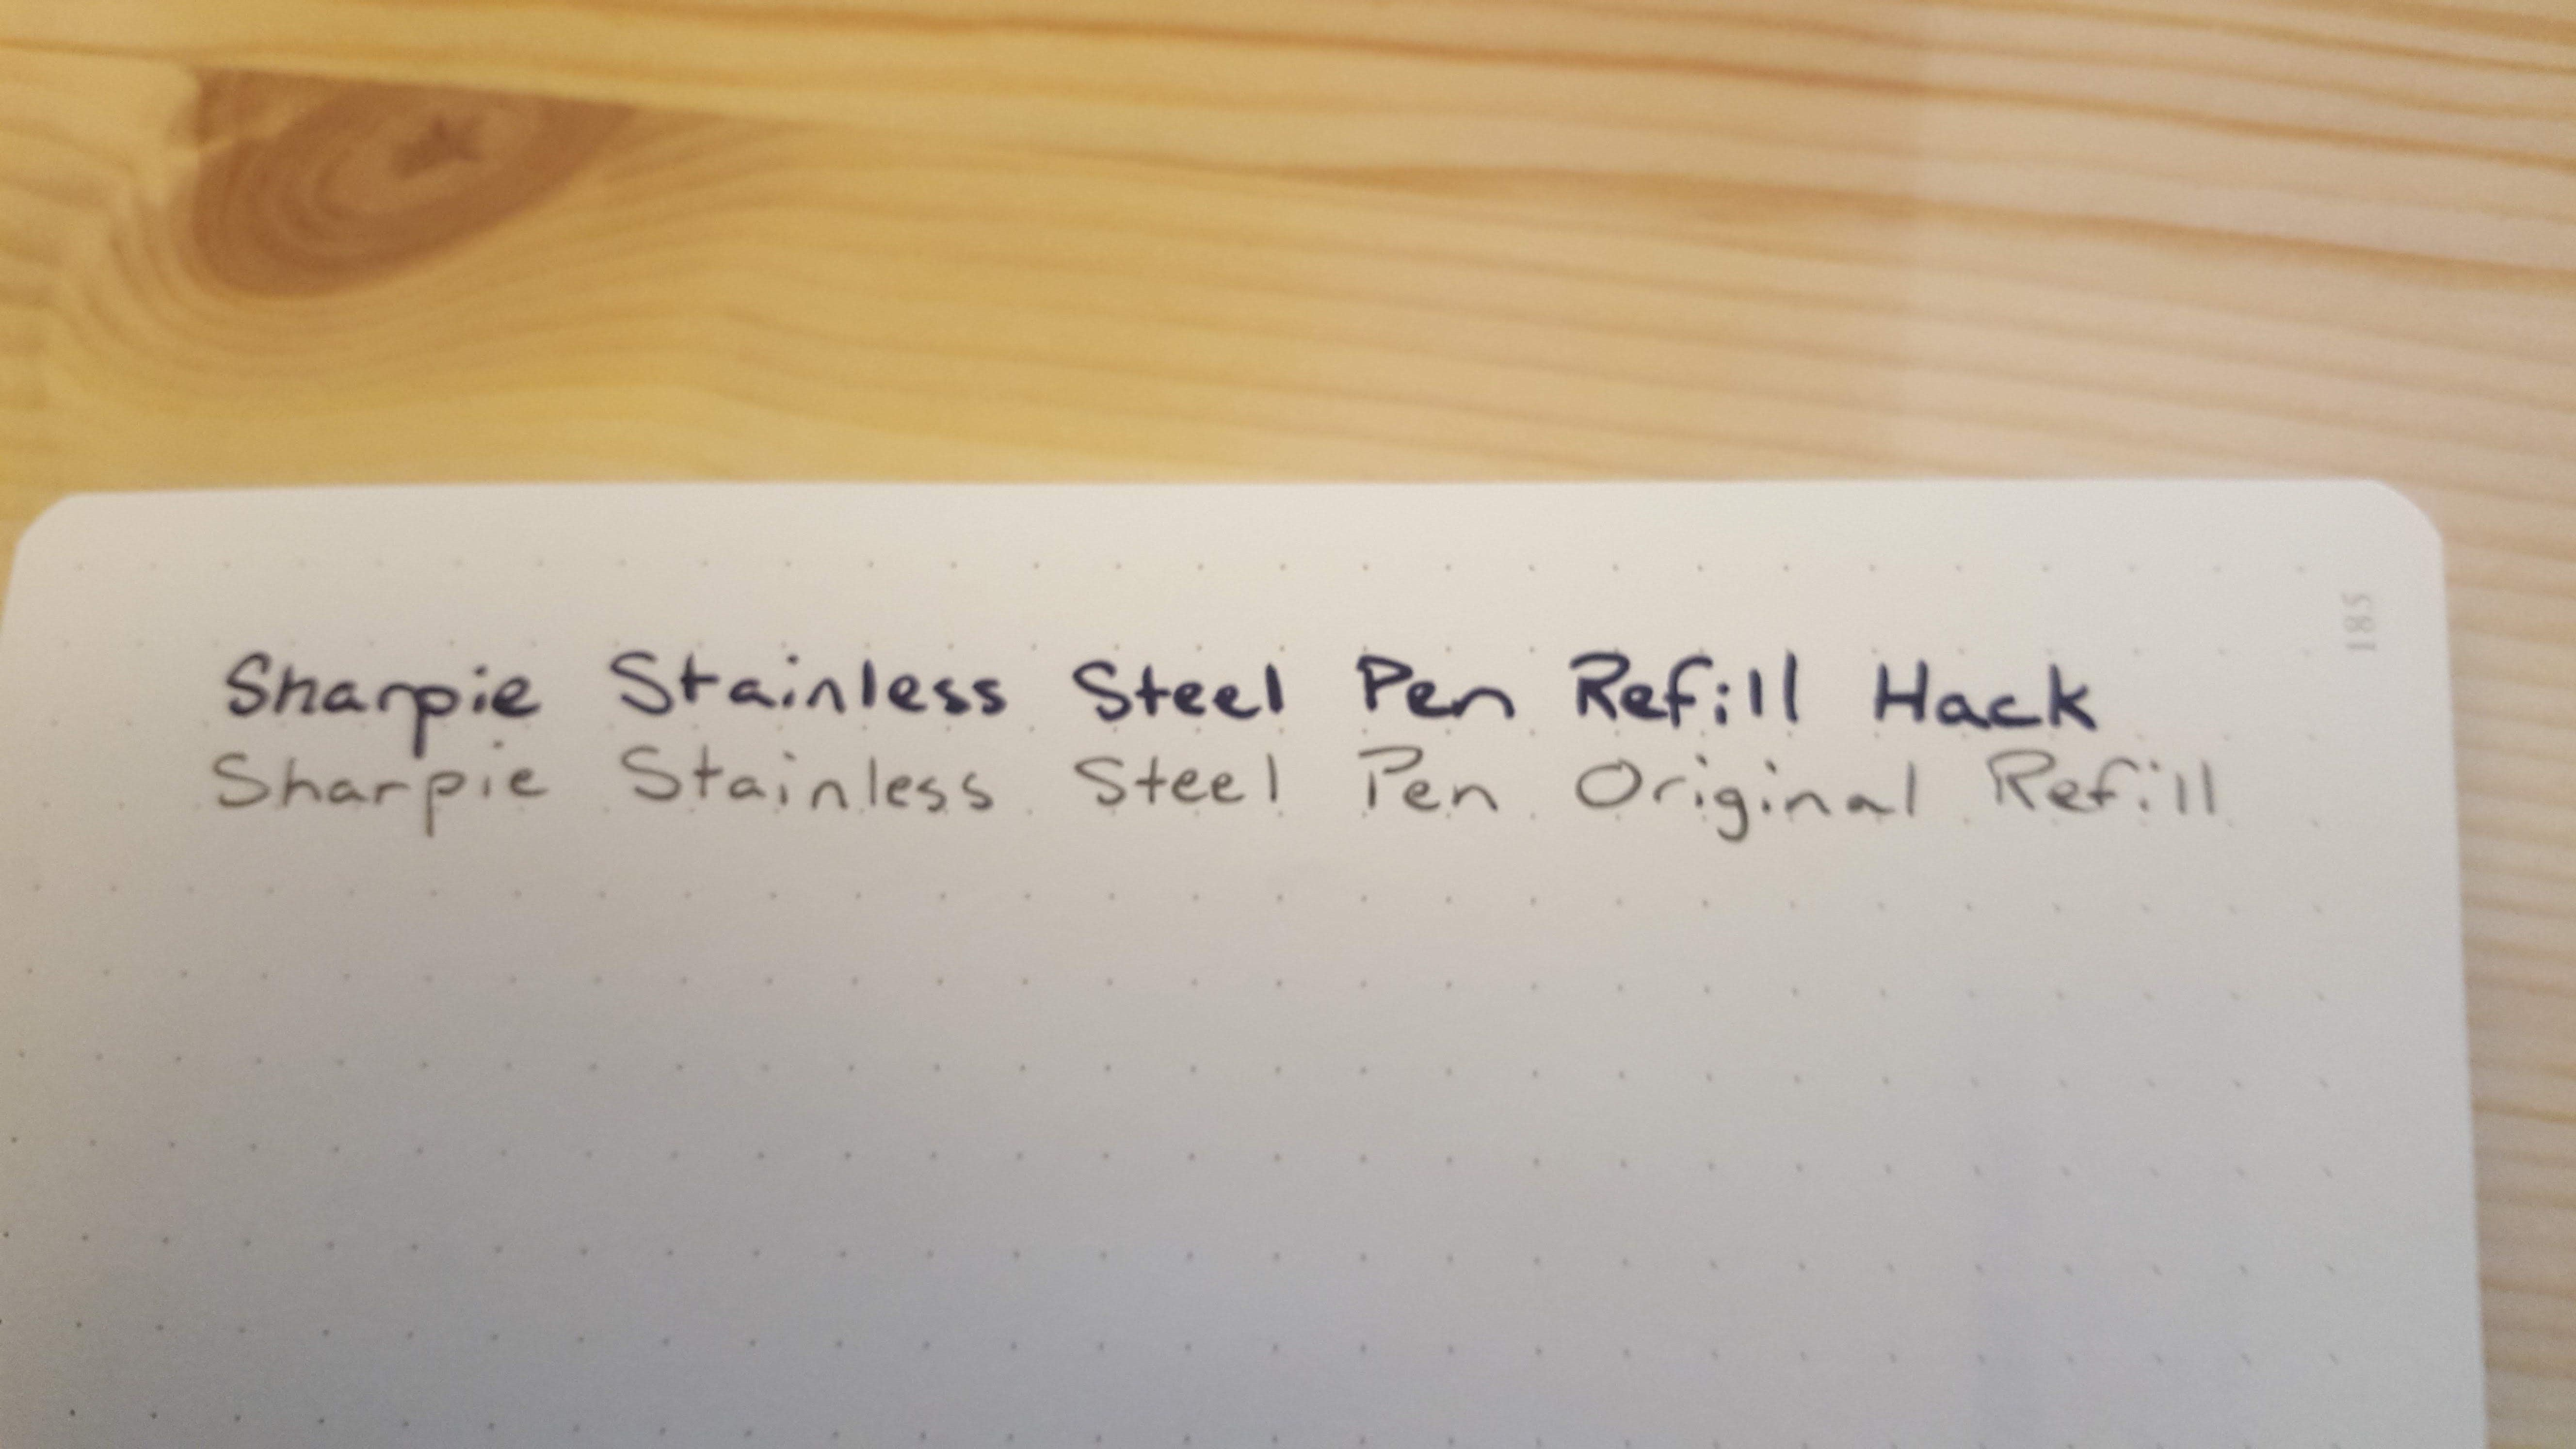 185
Sharpie Stainless Steel Pen Refill Hack
Sharpie Stainless Steel Pen Original Refill